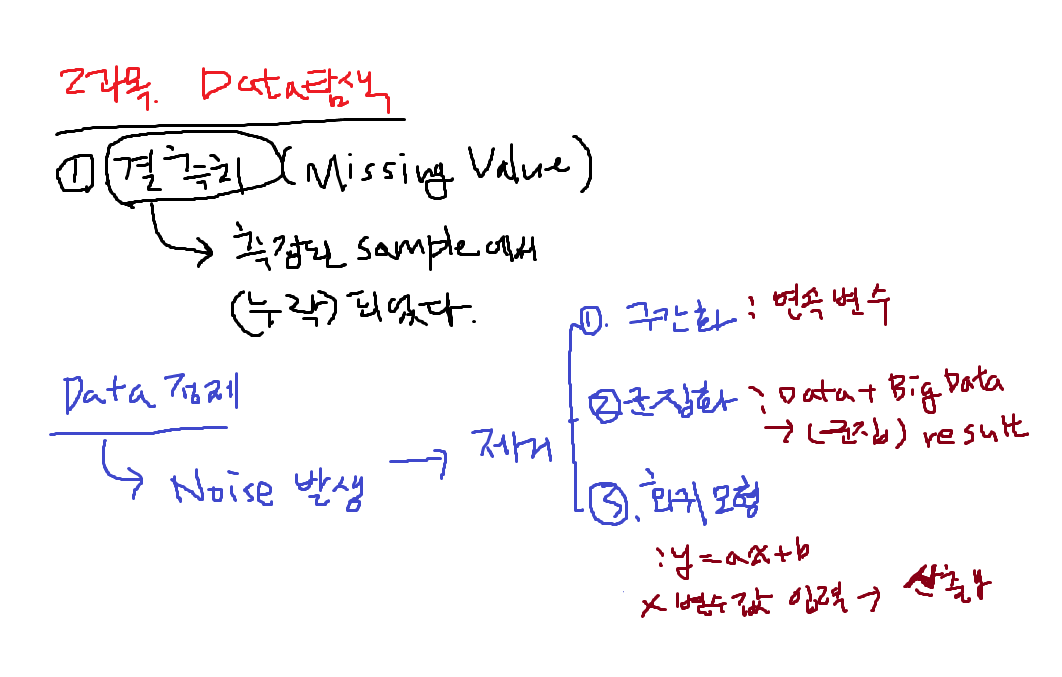 2과목. Data탐색
① 결측치 (Missing Value)
측정된 sample에서
(누락) 되었다.
Data 정제
Noise 발생 → 제거
①. 구간화 : 연속 변수
② 군집화 : Data + Big Data
→ (군집) result
③. 회귀 모형
: y = ax + b
x 변수 값 입력 → 산출y